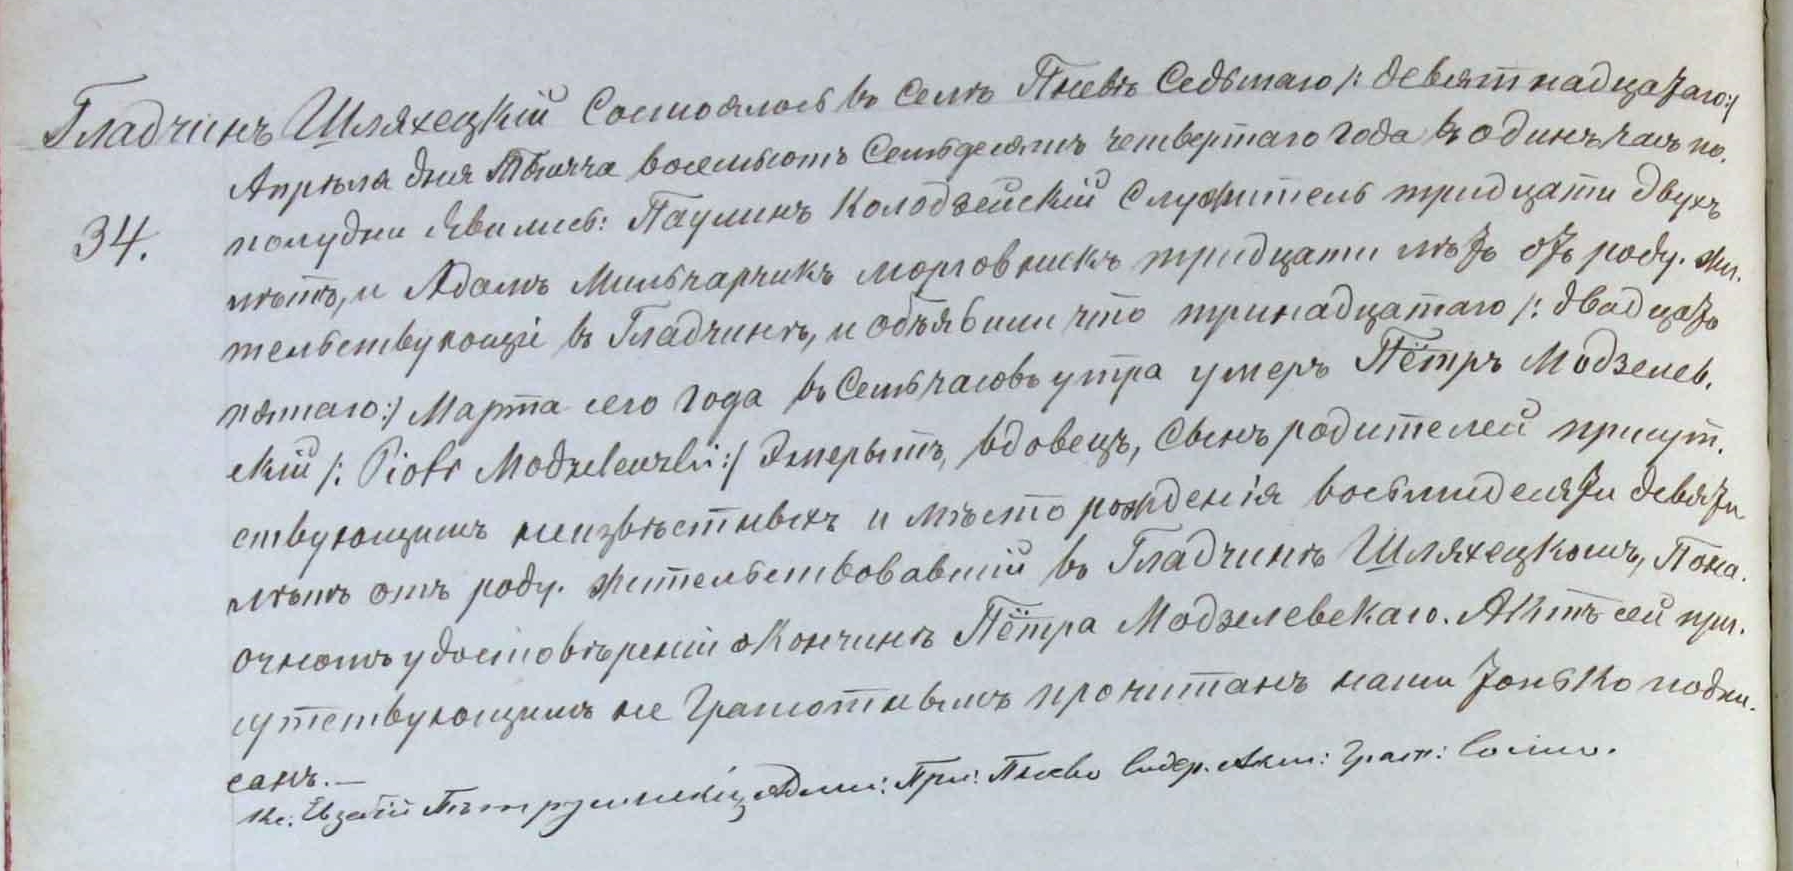 Гладчинъ Шляхецкій Состоялось въ селѣ Пневѣ Седьмаго /: девятнадцатаго:/
Апрѣля дня Тысяча восемьсотъ Семьдесятъ четвертаго года въ одинъ часъ по.
34.
полудни явились: Паулинъ Колодзейскій Служитель тридцати двухъ
лѣтъ, и Адамъ Мильчарчикъ морговникъ тридцати лѣтъ отъ роду. жи.
тельствующіе въ Гладчинѣ, и объявили что тринадцатаго /: двадцать
пятаго:/ Марта сего года въ Семь часовъ утра умеръ Пётръ Модзелев.
скій /: Piotr Modzelewski:/ Эмерытъ, вдовецъ, Сынъ родителей присут.
ствующимъ неизвѣстныхъ и мѣсто рожденія восьмидесяти девяти
лѣтъ отъ роду. жительствовавшій въ Гладчинѣ Шляхецкомъ, По на.
очномъ удостовѣреніи о Кончинѣ Пётра Модзелевскаго. Актъ сей при.
сутствующимъ не Грамотнымъ прочитанъ нами только подпи.
санъ.—
Кс. Адми: При: Пнево Содер. Акт: Граж: Состо.